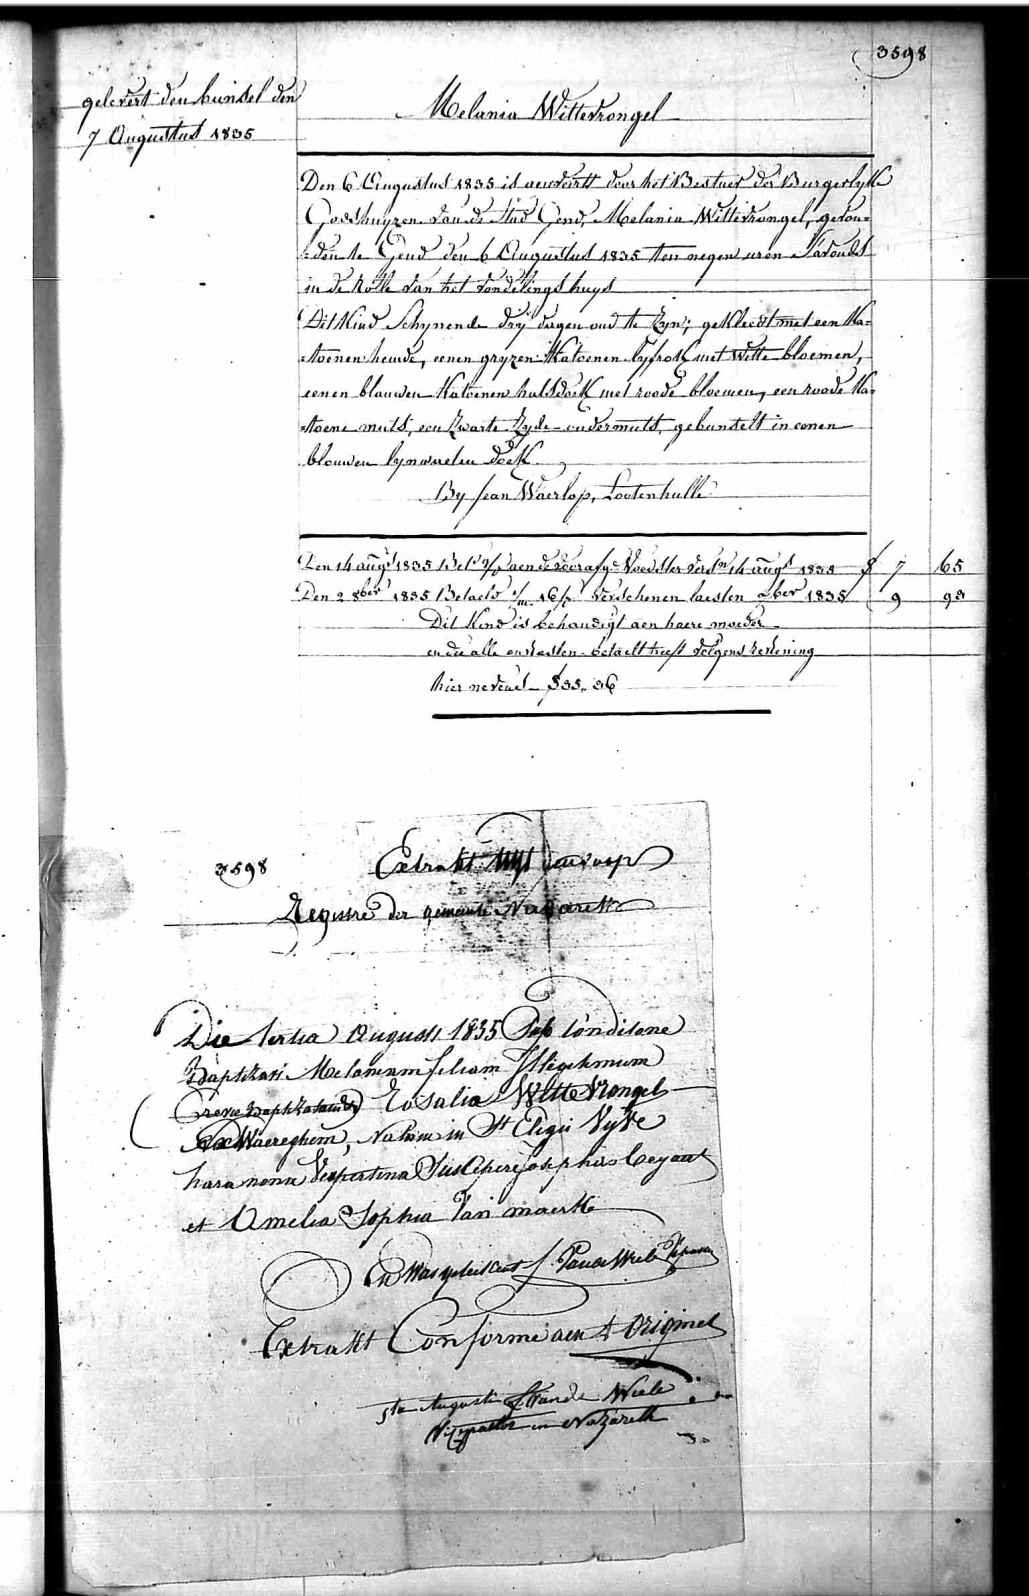 3598
gelevert den bundel den
7 Augustus 1835
Melania Wittevrongel
Den 6 Augustus 1835 is aenveirtt door het Bestuer der Burgerlyke
Godshuyzen van de stad Gend, Melania Wittevrongel, gevon=
=den te Gend den 6 Augustus 1835 ten negen uren s'avonds
in de rolle van het vondelingshuys
Dit kind schynende dry dagen oud te zyn; gekleedt met een ka=
=toenen hemde, eenen gryzen katoenen lyfrok met witte bloemen,
eenen blauwen katoenen halsdoek met roode bloemen, een roode ka=
=toene muts, een zwarte zyde ondermuts, gebunselt in eenen
blouwen lynwaeten doek.
By Jean Waerlop, Lootenhulle
Den 14 augt 1835 Bet. aen de voedster 14 augt 1835 7 65
Den 2 8ber 1835 Betaelt verschenen laesten 1835 9 93
Dit kind is behandigt aen haere moeder
en die alle onkosten betaelt heeft volgens rekening
hier nevens 35,, 36
3598
Extrakt uyt den doop
Registre der gemeente Nazareth
Die tertia Augusti 1835 sub conditione
Baptizavi Melaniam filiam Illegitimam
Rosaliæ Witte Vrongel
ex Waereghem, natam in St Eligii Vyve
hora nona vespertina Susceperunt Josephus
et Amelia Sophia Van maerke
En Was geteekent J. Van de Wiele
Extrakt Conforme aen t origineel
5ta Augusti J. Vande Wiele
in Nazareth